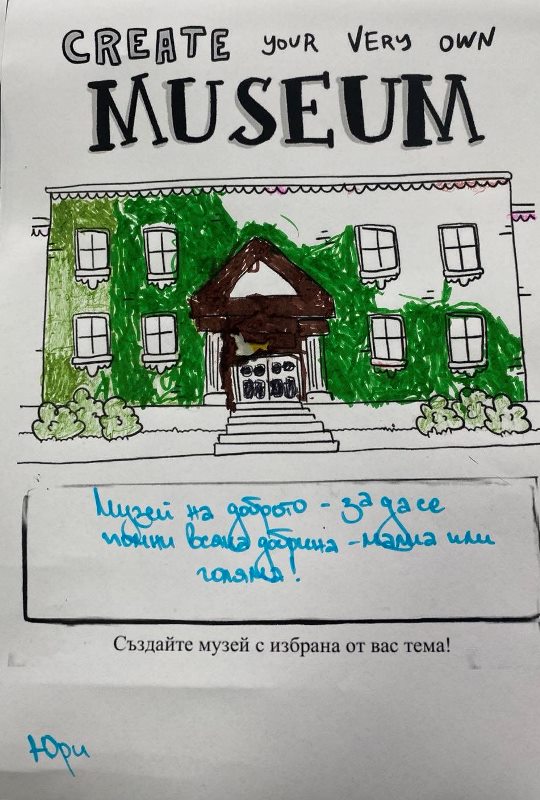 CREATE YOUR VERY OWN
MUSEUM
Музей на доброто - за да се
помни всяка добрина - малка или
голяма!
Създайте музей с избрана от вас тема!
Юри